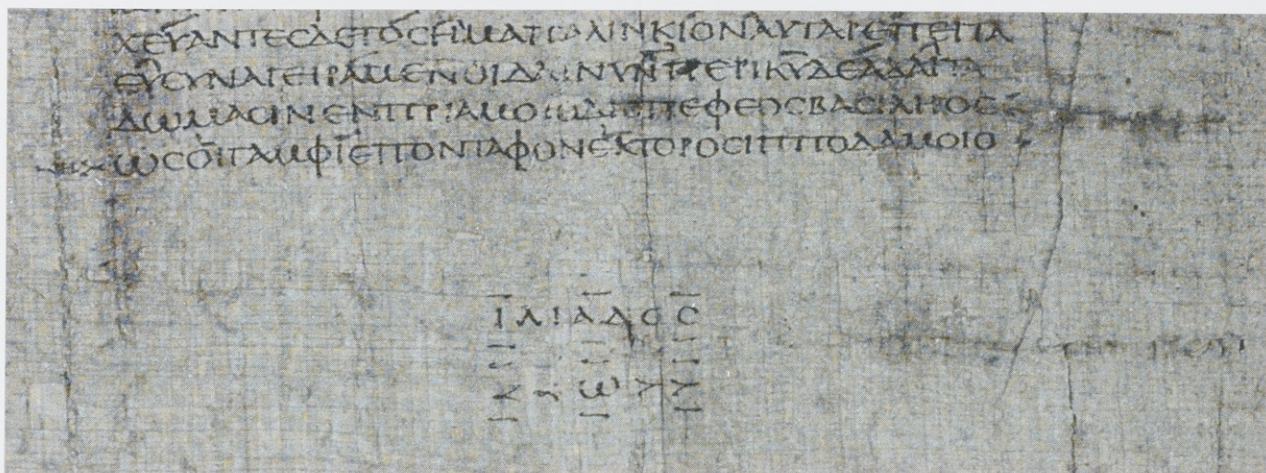 ΧΕΥΑΝΤΕCΔΕΤΟCΗΜΑΠΑΛΙΝΚΙΟΝΑΥΤΑΡΕΠΕΙΤΑ
ΕΥCΥΝΑΓΕΙΡΑΜΕΝΟΙΔΑΙΝΥΝΤΕΡΙΚΥΔΕΑΔΑΙΤΑ
ΔΩΜΑCΙΝΕΝΠΡΙΑΜΟΙΟΔΙΟΤΡΕΦΕΟCΒΑCΙΛΗΟC
ΩCΟΙΓΑΜΦΙΕΠΟΝΤΑΦΟΝΕΚΤΟΡΟCΙΠΠΟΔΑΜΟΙΟ
ΙΛΙΑΔΟC
Ω